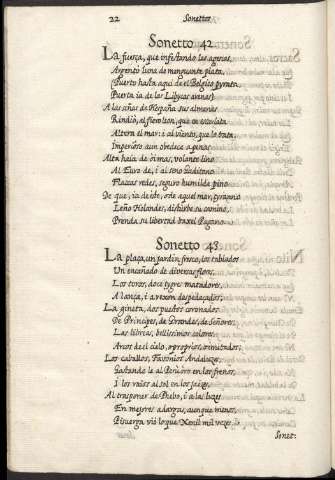 22
Sonettos
Sonetto 42
La fuerça, que infestando las agenas,
Argentó luna de menguante plata,
(Puerto hasta aqui de el Belgico pyrata,
Puerta ia de las Libycas arenas)
A las señas de Hespaña sus almenas
Rindiò, al fiero leon, que en escarlata
Altera el mar: i al viento, que lo trata,
Imperioso aun obedece apenas.
Alta haia de oi mas, volante lino
Al Euro de, i al seno Gaditano
Flacas redes, seguro humilde pino
De que, ia deste, o de aquel mar, tyranno
Leño Holandes, disturbe su camino,
Prenda su libertad baxel Pagano.
Sonetto 43
La plaça, un jardin fresco, los tablados
Un encañado de diversas flores,
Los toros, doce tygres matadores,
A lança, i a rexon despedaçados,
La gineta, dos puestos coronados
De Principes, de Grandes, de Señores,
Las libreas, bellissimos colores,
Arcos de el cielo, o proprios, o imitados,
Los caballos, Favonios Andaluzes,
Gastandole al Perú oro en los frenos,
I los raios al sol en los jaezes,
Al trasponer de Phebo, i a las luzes
En mejores adargas, aunque menos,
Pisuerga viò lo que Xenil mil vezes.
Sonet: